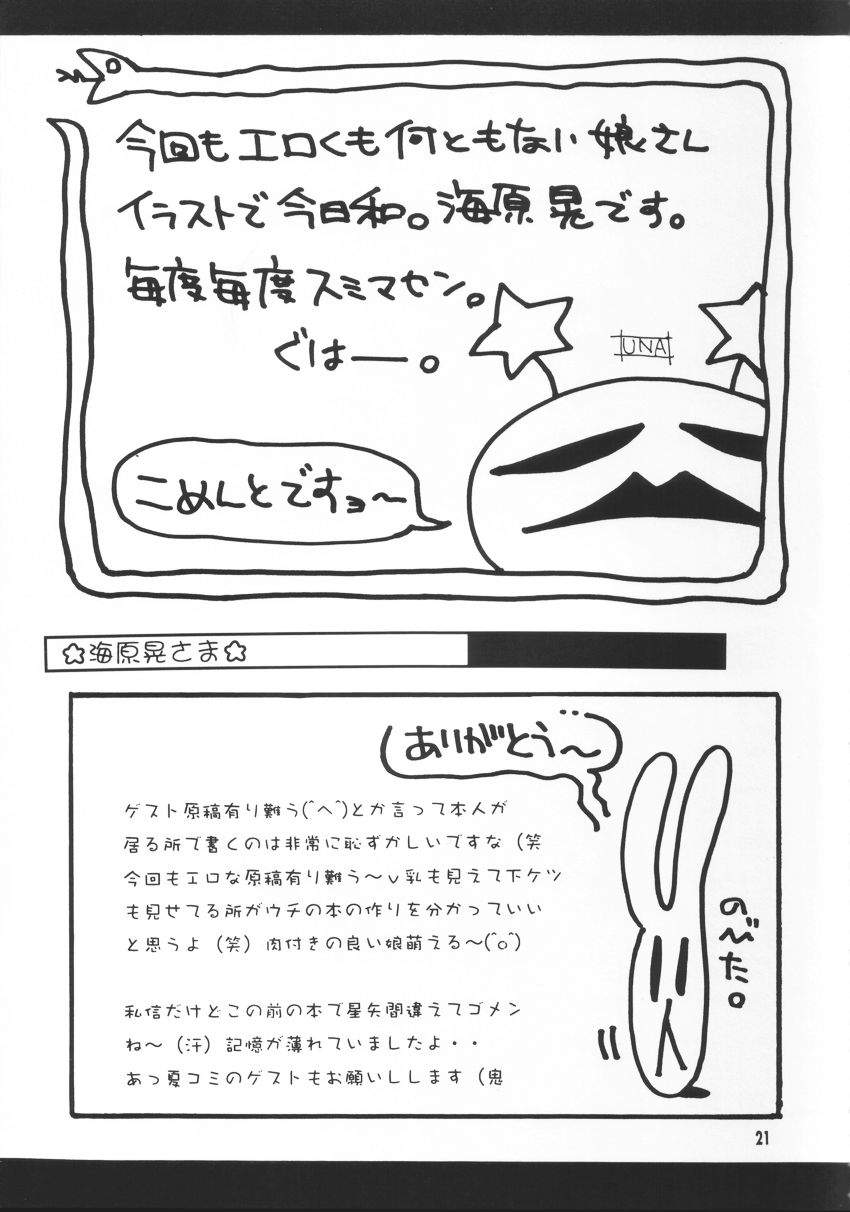 今回もエロくも何ともない娘さん
イラストで今日和。海原晃です。
毎度毎度スミマセン。
ぐはー。
UNA
こめんとですョ〜
☆海原晃さま☆
ありがとう〜
ゲスト原稿有り難う(^へ^)とか言って本人が
居る所で書くのは非常に恥ずかしいですな（笑
今回もエロな原稿有り難う〜ｖ乳も見えて下ケツ
も見せてる所がウチの本の作りを分かっていい
と思うよ（笑）肉付きの良い娘萌える〜(^o^)
のびた。
私信だけどこの前の本で星矢間違えてゴメン
ね〜（汗）記憶が薄れていましたよ・・
あっ夏コミのゲストもお願いしします（鬼
21